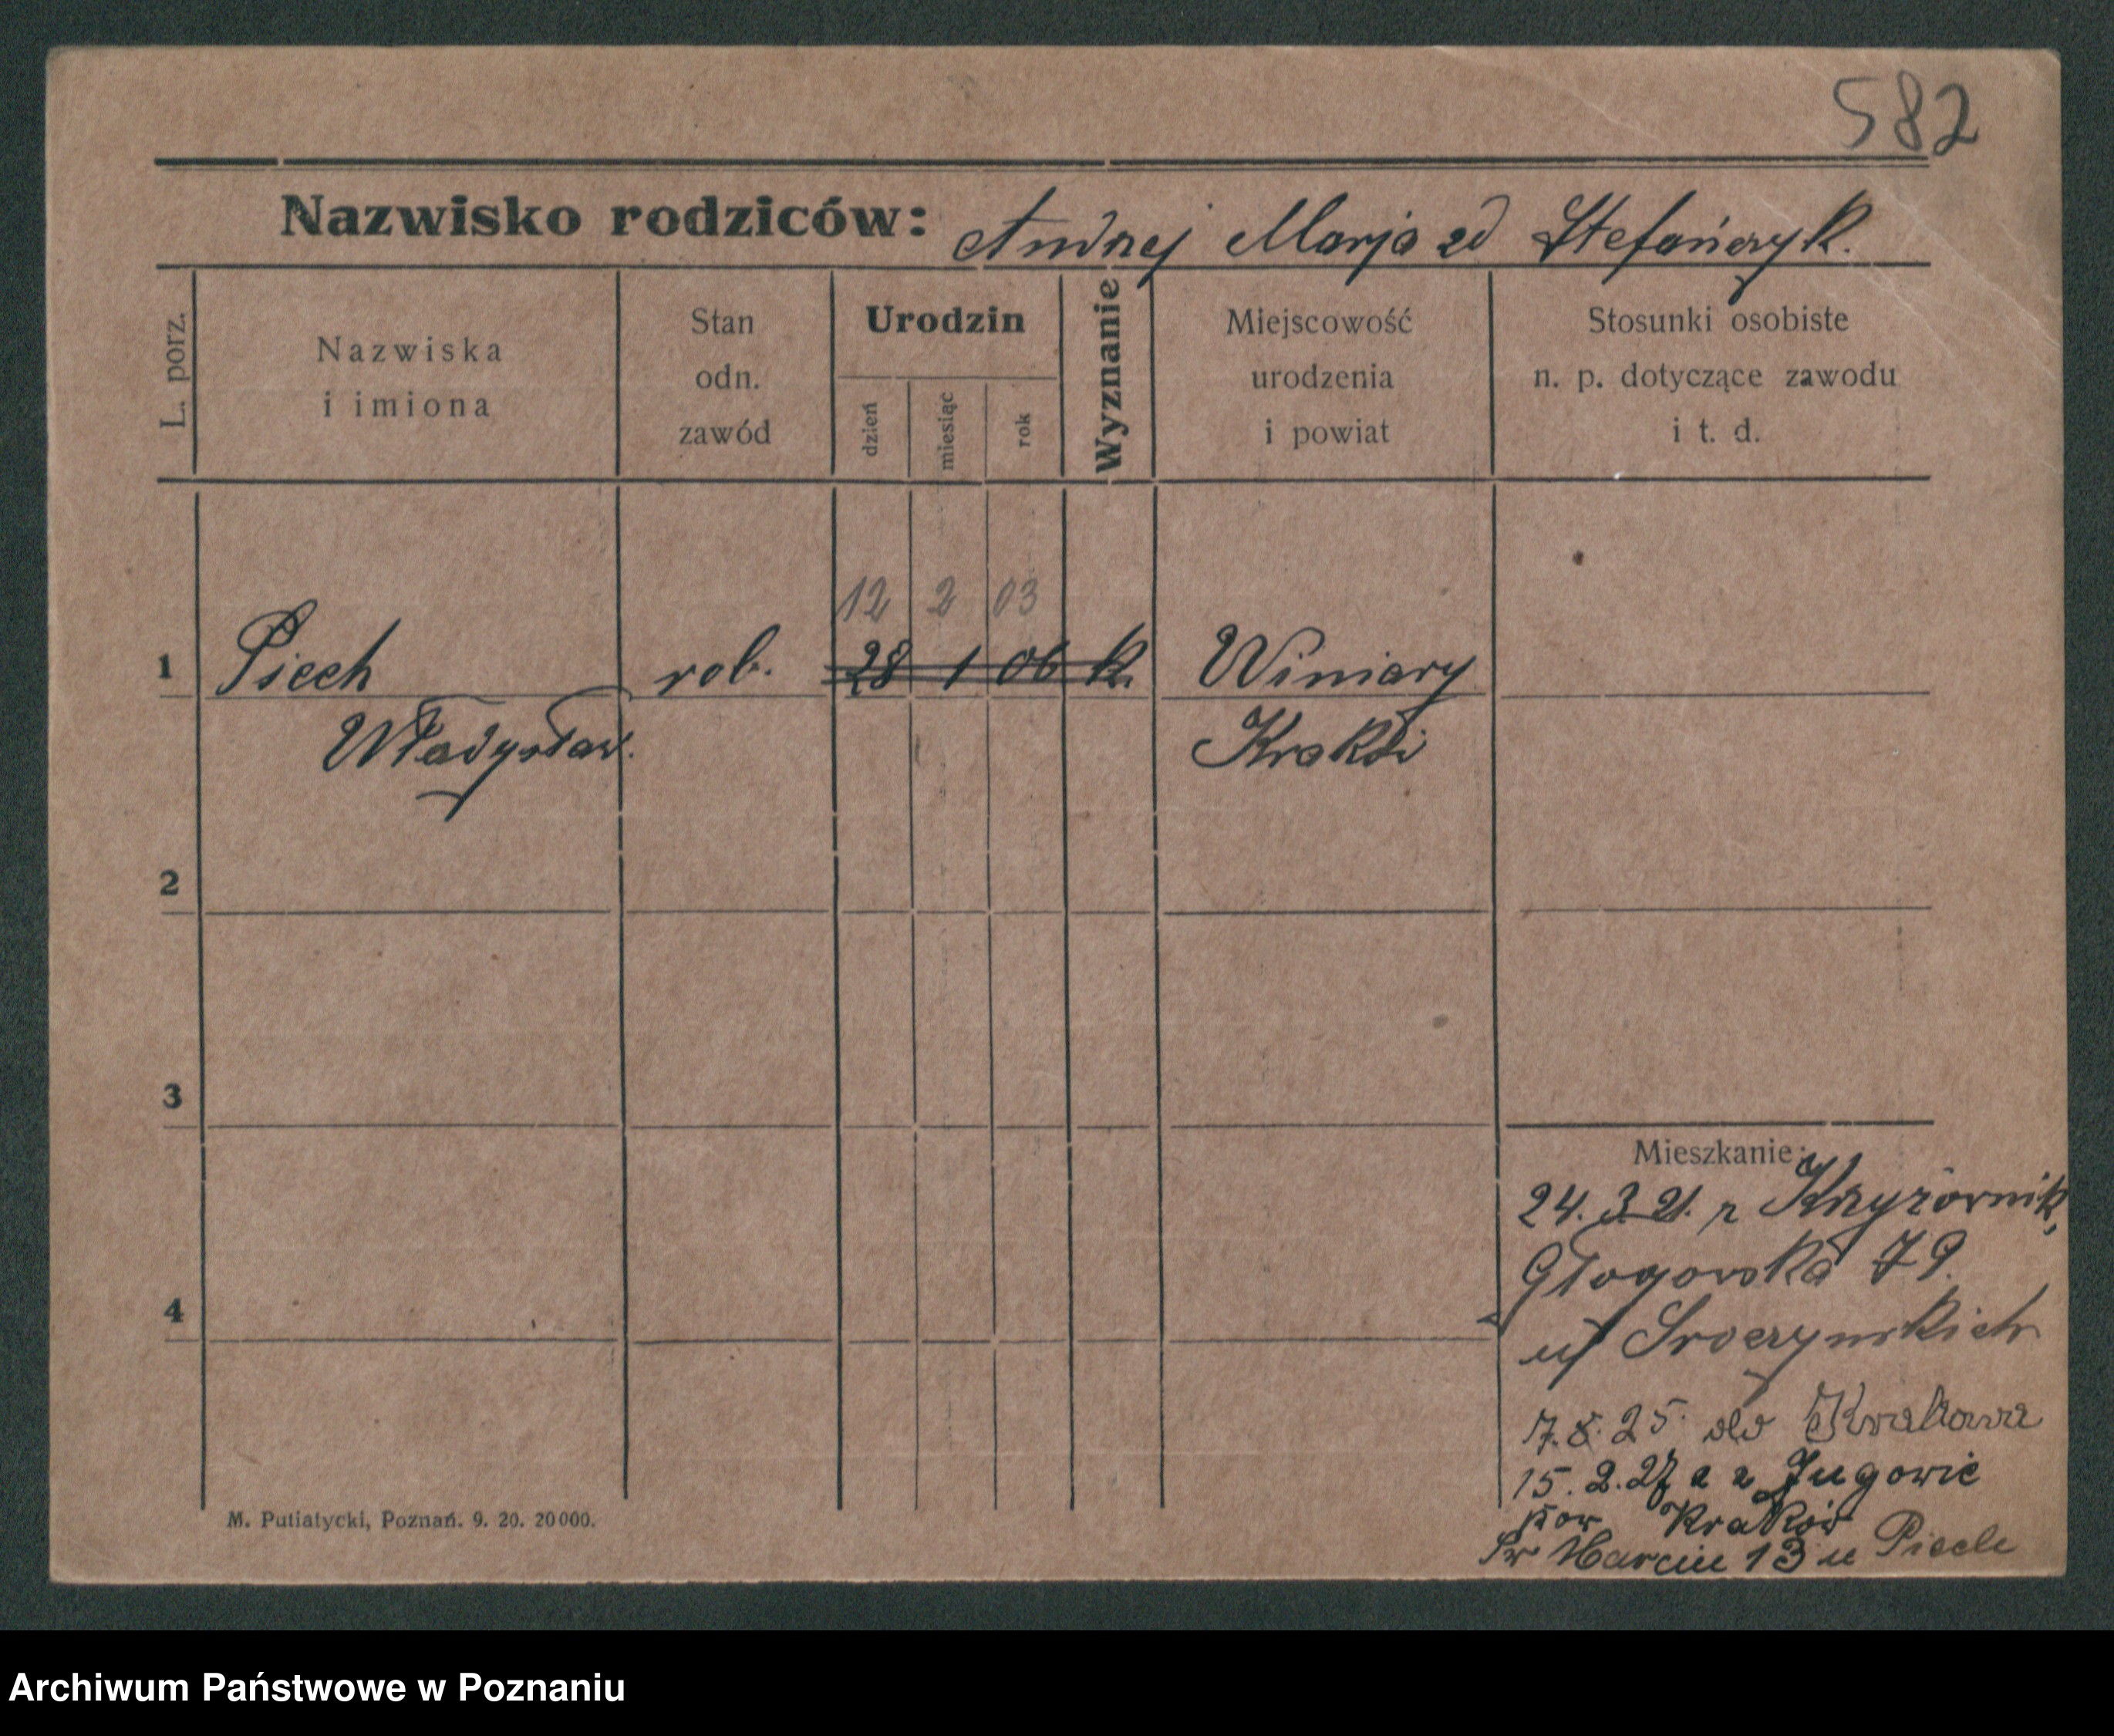 582
Nazwisko rodziców: Andrzej Marja zd Stefańczyk.
L. porz.
Nazwiska
i imiona
Stan
odn.
zawód
Urodzin
dzień
miesiąc
rok
Wyznanie
Miejscowość
urodzenia
i powiat
Stosunki osobiste
n. p. dotyczące zawodu
i t. d.
12 2 03
1 Piech rob. 28 1 06 k. Winiary
Władysław. Kraków
2
3
Mieszkanie:
24. 3. 21. z Krzyżownik,
Głogowska 79.
4
u Sroczyńskich
7. 8. 25. do Krakowa
15. 2. 27 z Jugowic
pow Kraków
Św Marcin 13 u Piech
M. Putiatycki, Poznań. 9. 20. 20000.
Archiwum Państwowe w Poznaniu